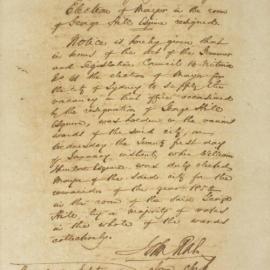 Election of Mayor in the room
of George Hill Esquire resigned.
Notice is hereby given that
in terms of the Act of the Governor
and Legislative Council 14 Victoria
No 41 the election of Mayor for
the City of Sydney to supply the
vacancy in that office occasioned
by the resignation of George Hill
Esquire, was holden in the various
wards of the said city, on
Wednesday the
of January instant, when William
Esquire was duly elected
Mayor of the said city for the
remainder of the year
in the room of the said George
Hill, by a majority of votes
in the whole of the wards
collectively.
John